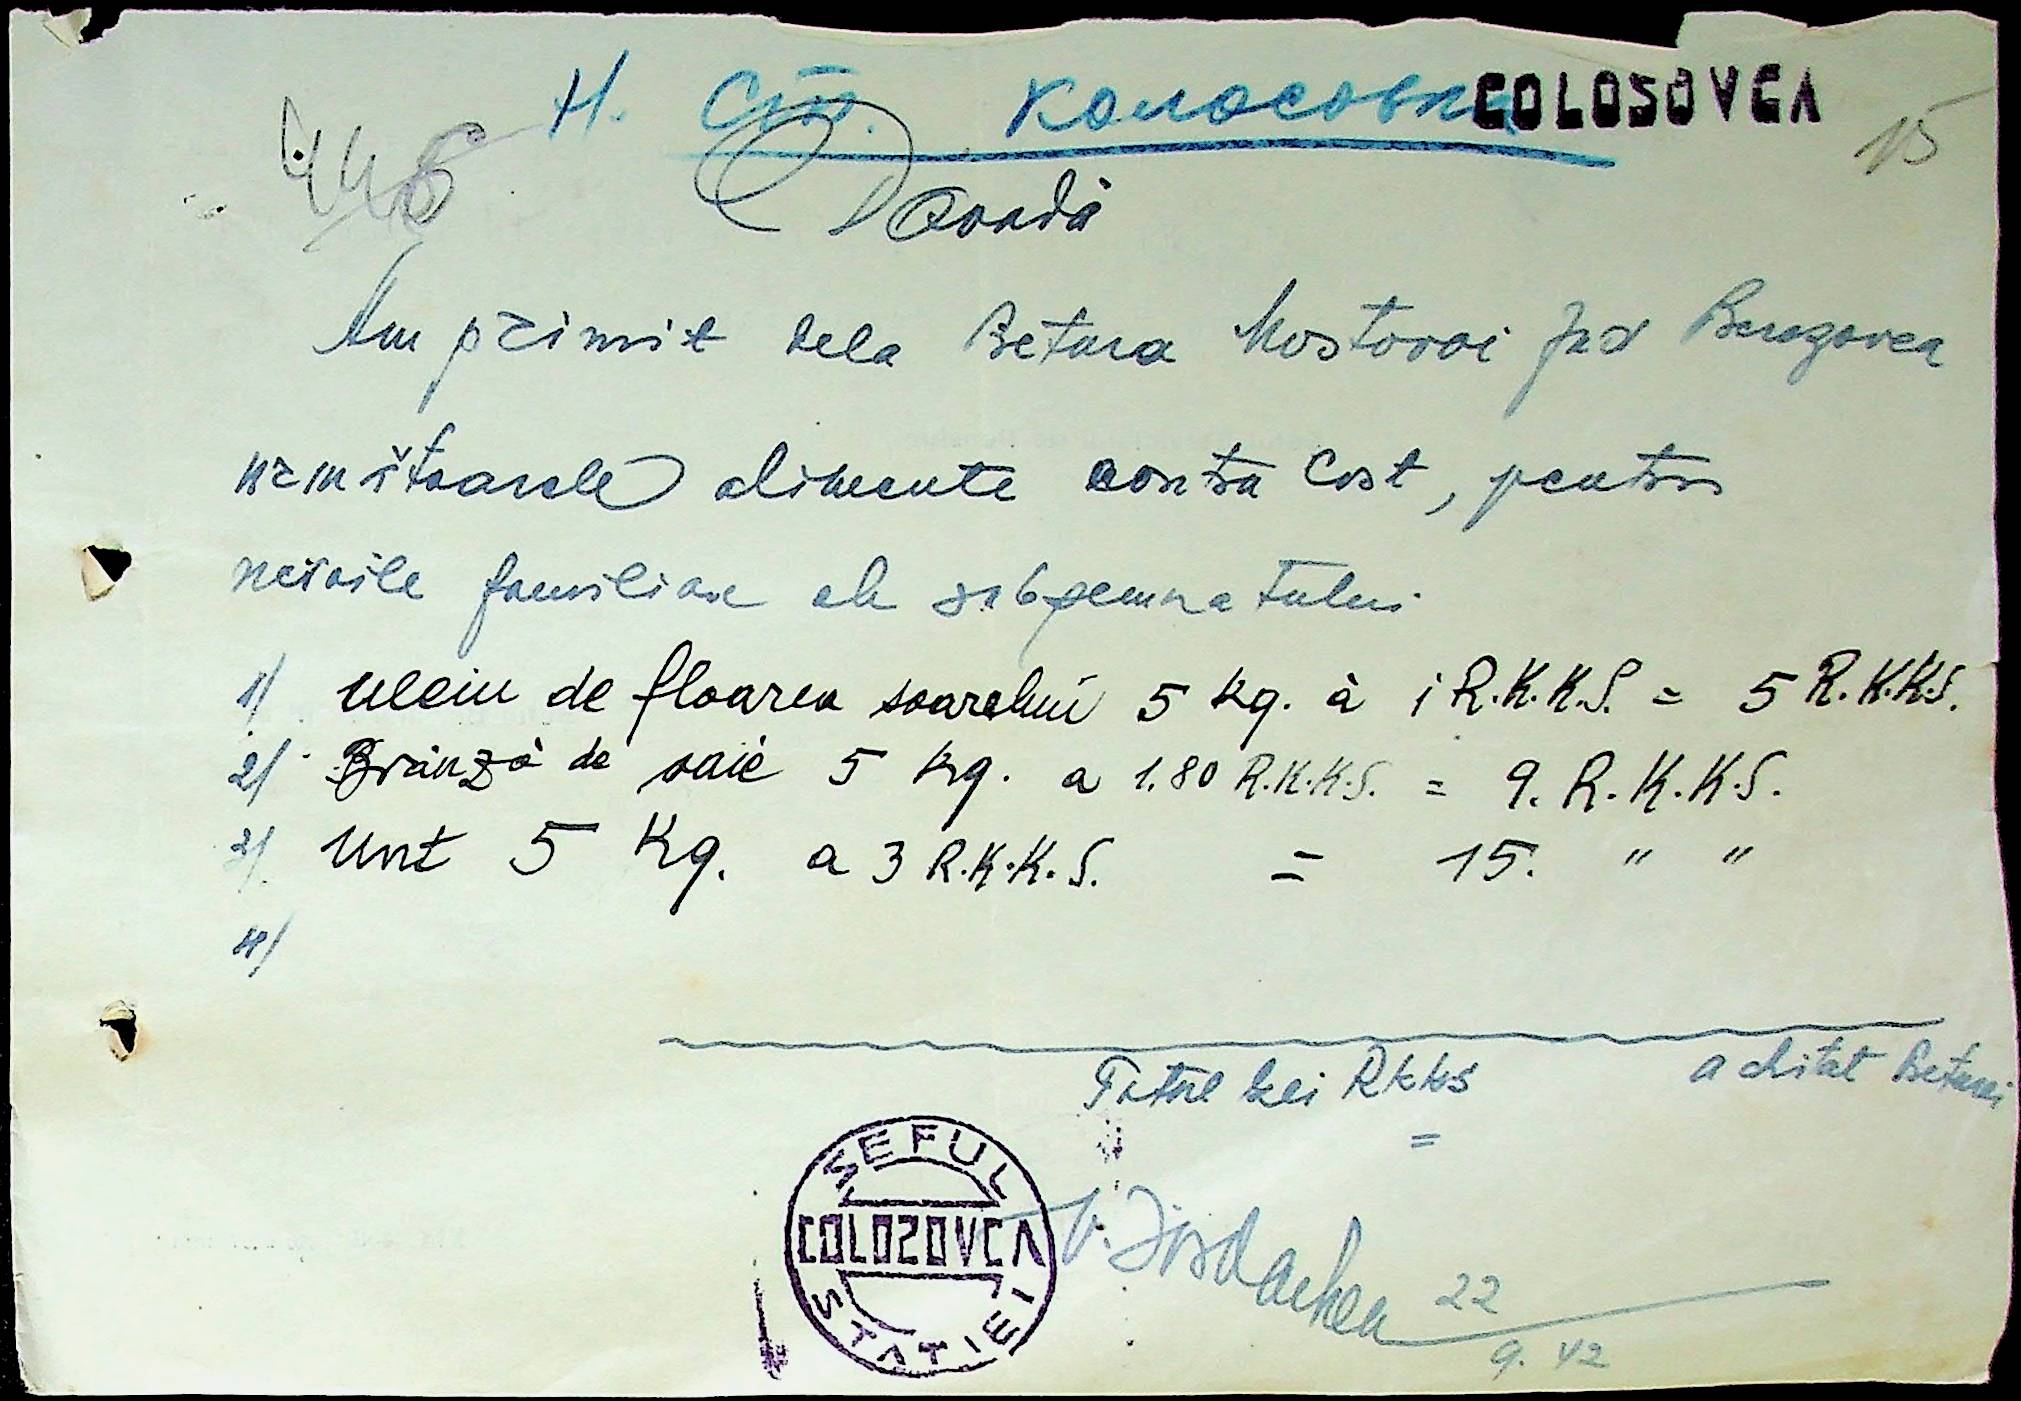 Н. Ст. Колосовка COLOSOVCA
446 15
Dovadă
Am primit dela Pretura Mostovoi jud Berezovca
următoarele alimente contra cost, pentru
nevoile familiare ale subsemnatului
1/ uleiu de floarea soarelui 5 kg. à 1 R.K.K.S. = 5 R.K.K.S.
2/ Brânză de oaie 5 kg. a 1.80 R.K.K.S. = 9. R.K.K.S.
3/ Unt 5 Kg. a 3 R.K.K.S. = 15. " "
4/
Total lei RKKS achitat Preturei
=
ȘEFUL
COLOZOVCA
STAȚIEI
V. Iordachea 22
9. 42